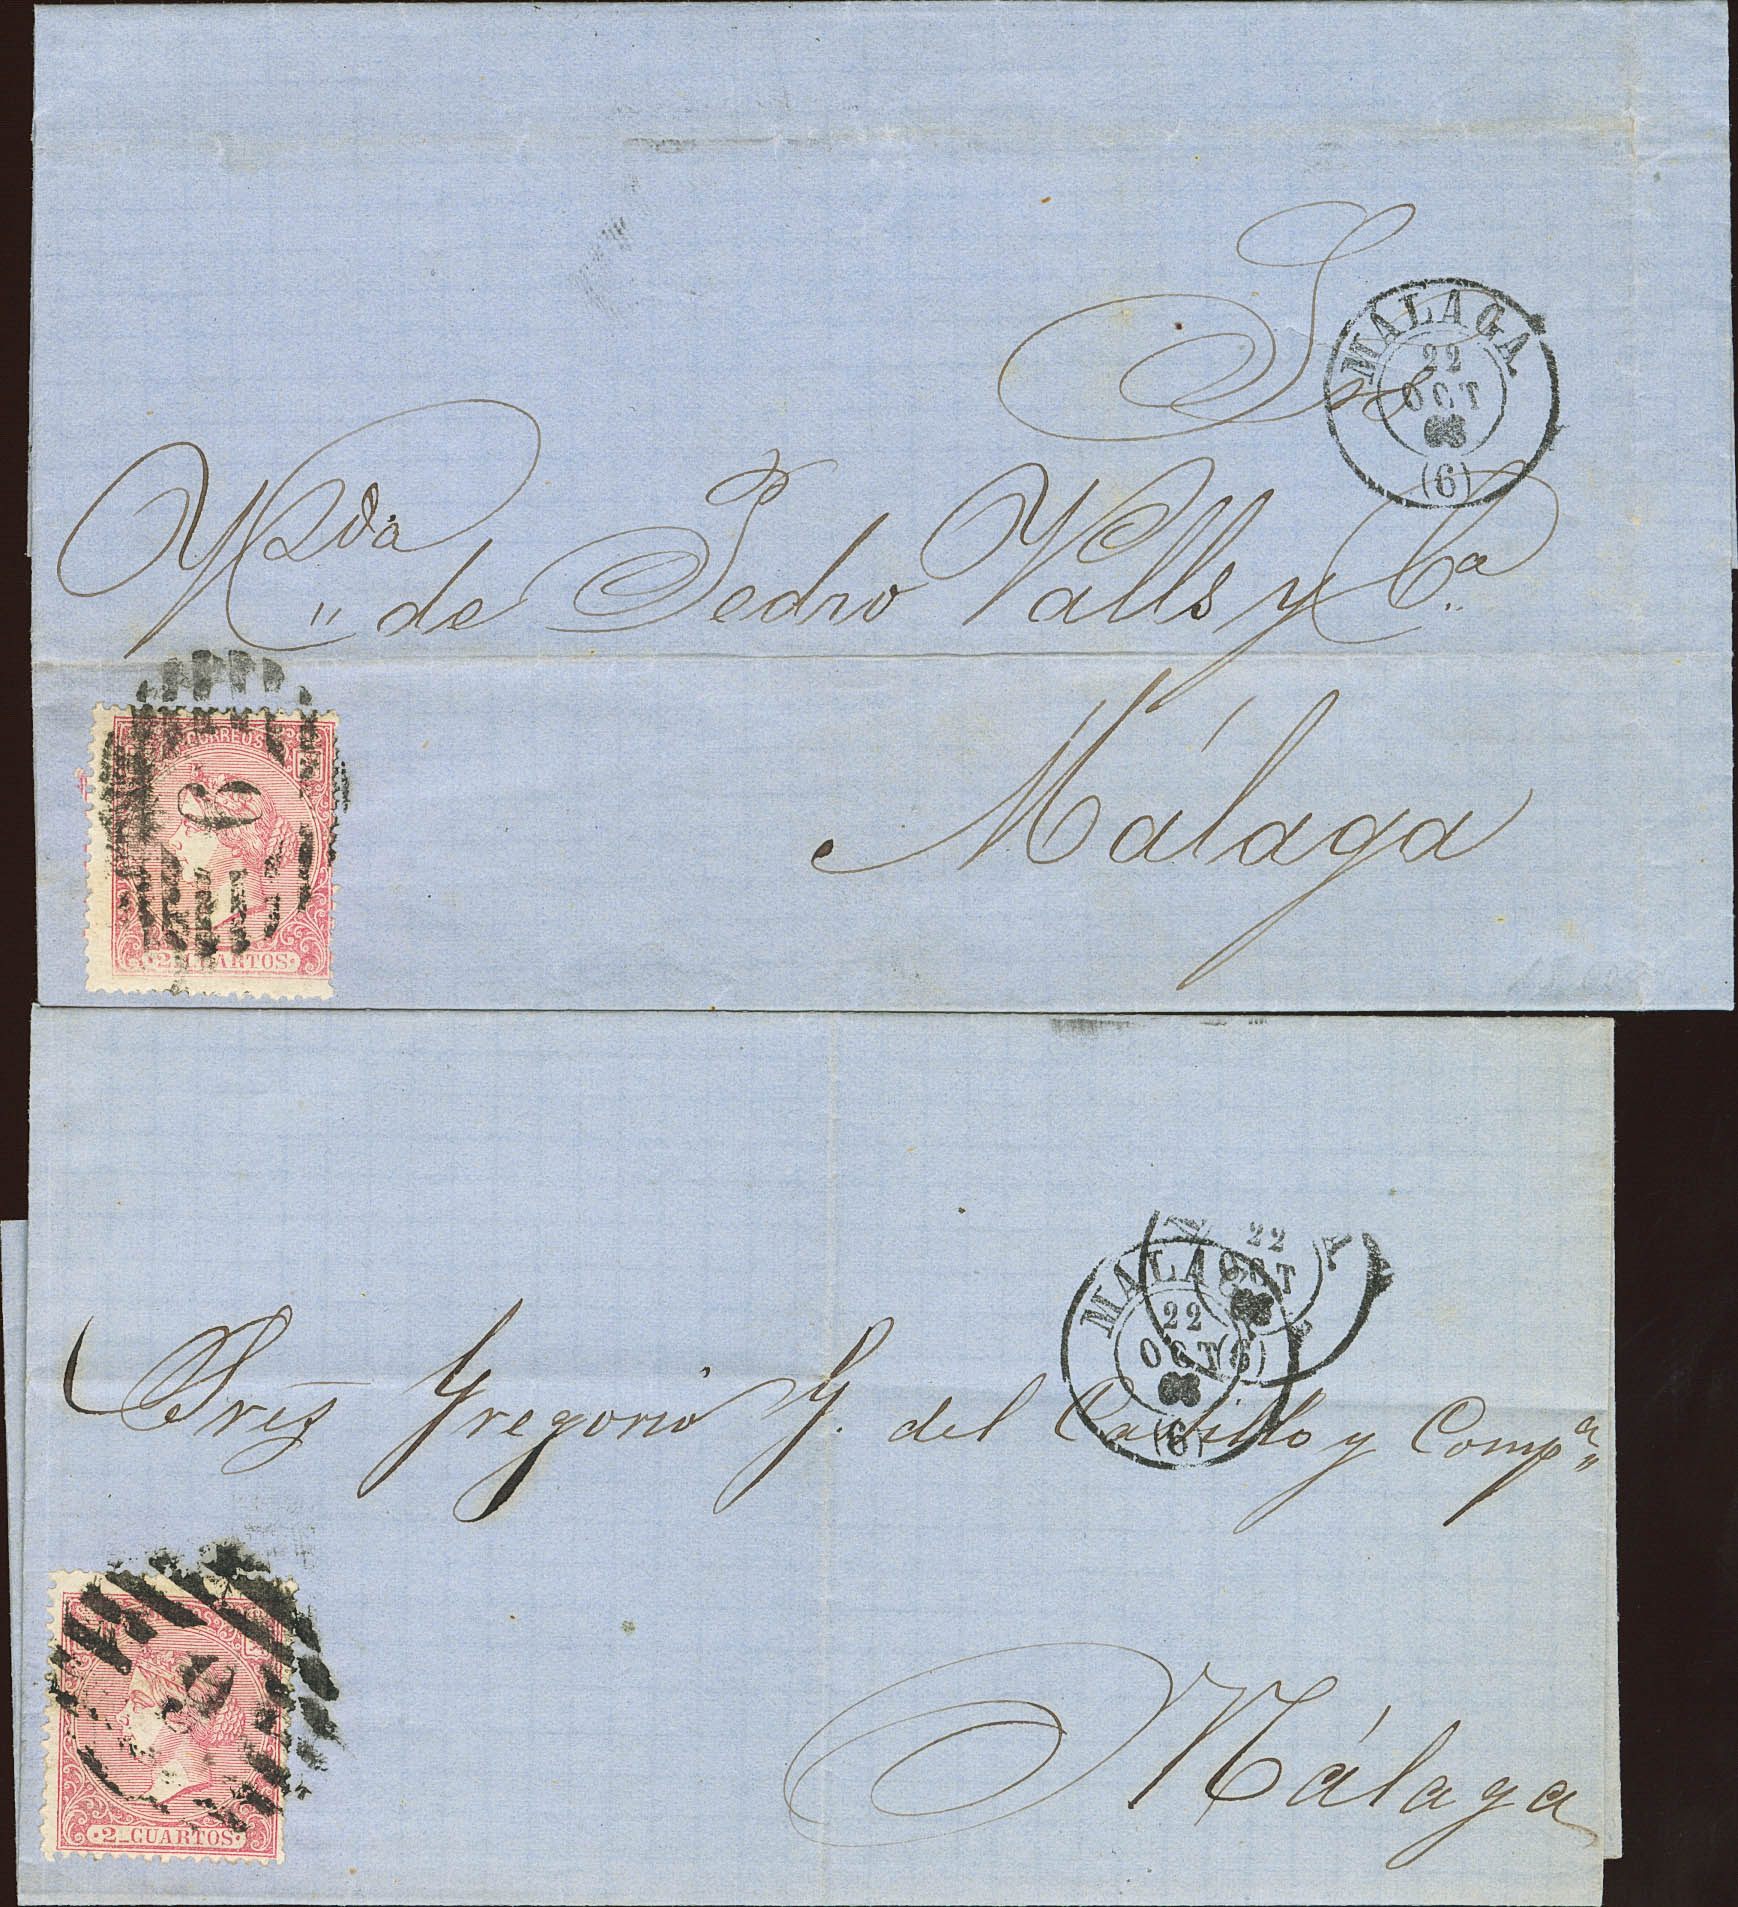 Sra
MALAGA
22
OCT
(6)
Vda
de Pedro Valls y Cª
Málaga
CORREOS
6
2 CUARTOS
22
OCT
(6)
MALAGA
22
OCT
(6)
Sres Gregorio G. del Castillo y Compª
Málaga
2_CUARTOS